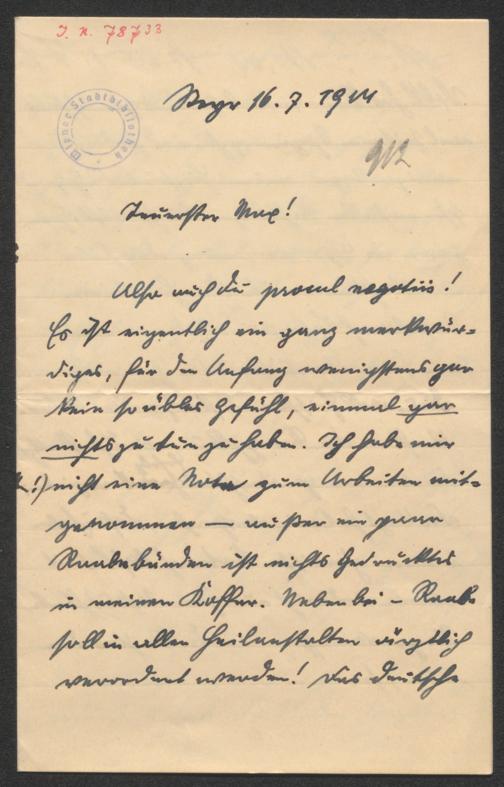 I. N. 78733
Wiener Stadtbibliothek
Steyr 16. 7. 1914
912
Teuerster Max!
Also auch du procul negotiis!
Es ist eigentlich ein ganz merkwür=
diges, für den Anfang wenigstens gar
kein so übles Gefühl, einmal gar
nichts zu tun zu haben. Ich habe mir
!) nicht eine Note zum Arbeiten mit=
genommen — außer ein paar
Raabebänden ist nichts Gedrucktes
in meinem Koffer. Nebenbei – Raabe
soll in allen Heilanstalten ärztlich
verordnet werden! Das deutsche